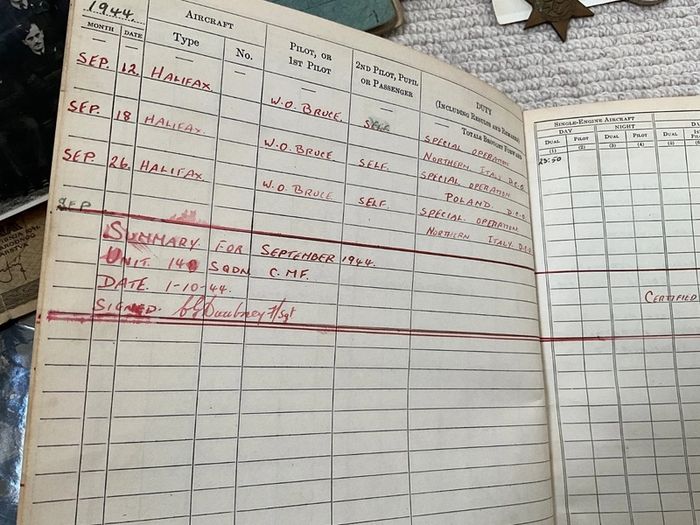 1944
AIRCRAFT
MONTH DATE Type No.
PILOT, OR 1ST PILOT
2ND PILOT, PUPIL OR PASSENGER
DUTY (INCLUDING RESULTS AND REMARKS)
— — — — — — TOTALS BROUGHT FORWARD
SEP. 12. HALIFAX W.O. BRUCE. SELF SPECIAL OPERATION
NORTHERN ITALY D.C.O.
SEP. 18 HALIFAX. W.O. BRUCE SELF. SPECIAL OPERATION
POLAND. D.C.O.
SEP. 26. HALIFAX W.O. BRUCE SELF. SPECIAL OPERATION
NORTHERN ITALY D.C.O.
SEP
SUMMARY FOR SEPTEMBER 1944.
UNIT. 148 SQDN C.M.F.
DATE. 1-10-44.
SIGNED. Daubney F/Sgt
SINGLE-ENGINE AIRCRAFT
DAY NIGHT
DUAL PILOT DUAL PILOT DUAL
(1) (2) (3) (4) (5)
25:50
CERTIFIED